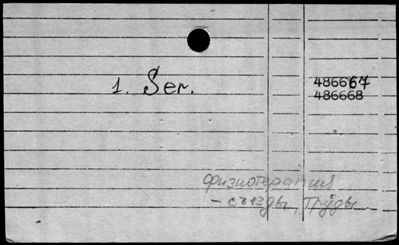 1. Ser.
486667
486668
физиотерапия
– съезды, труды